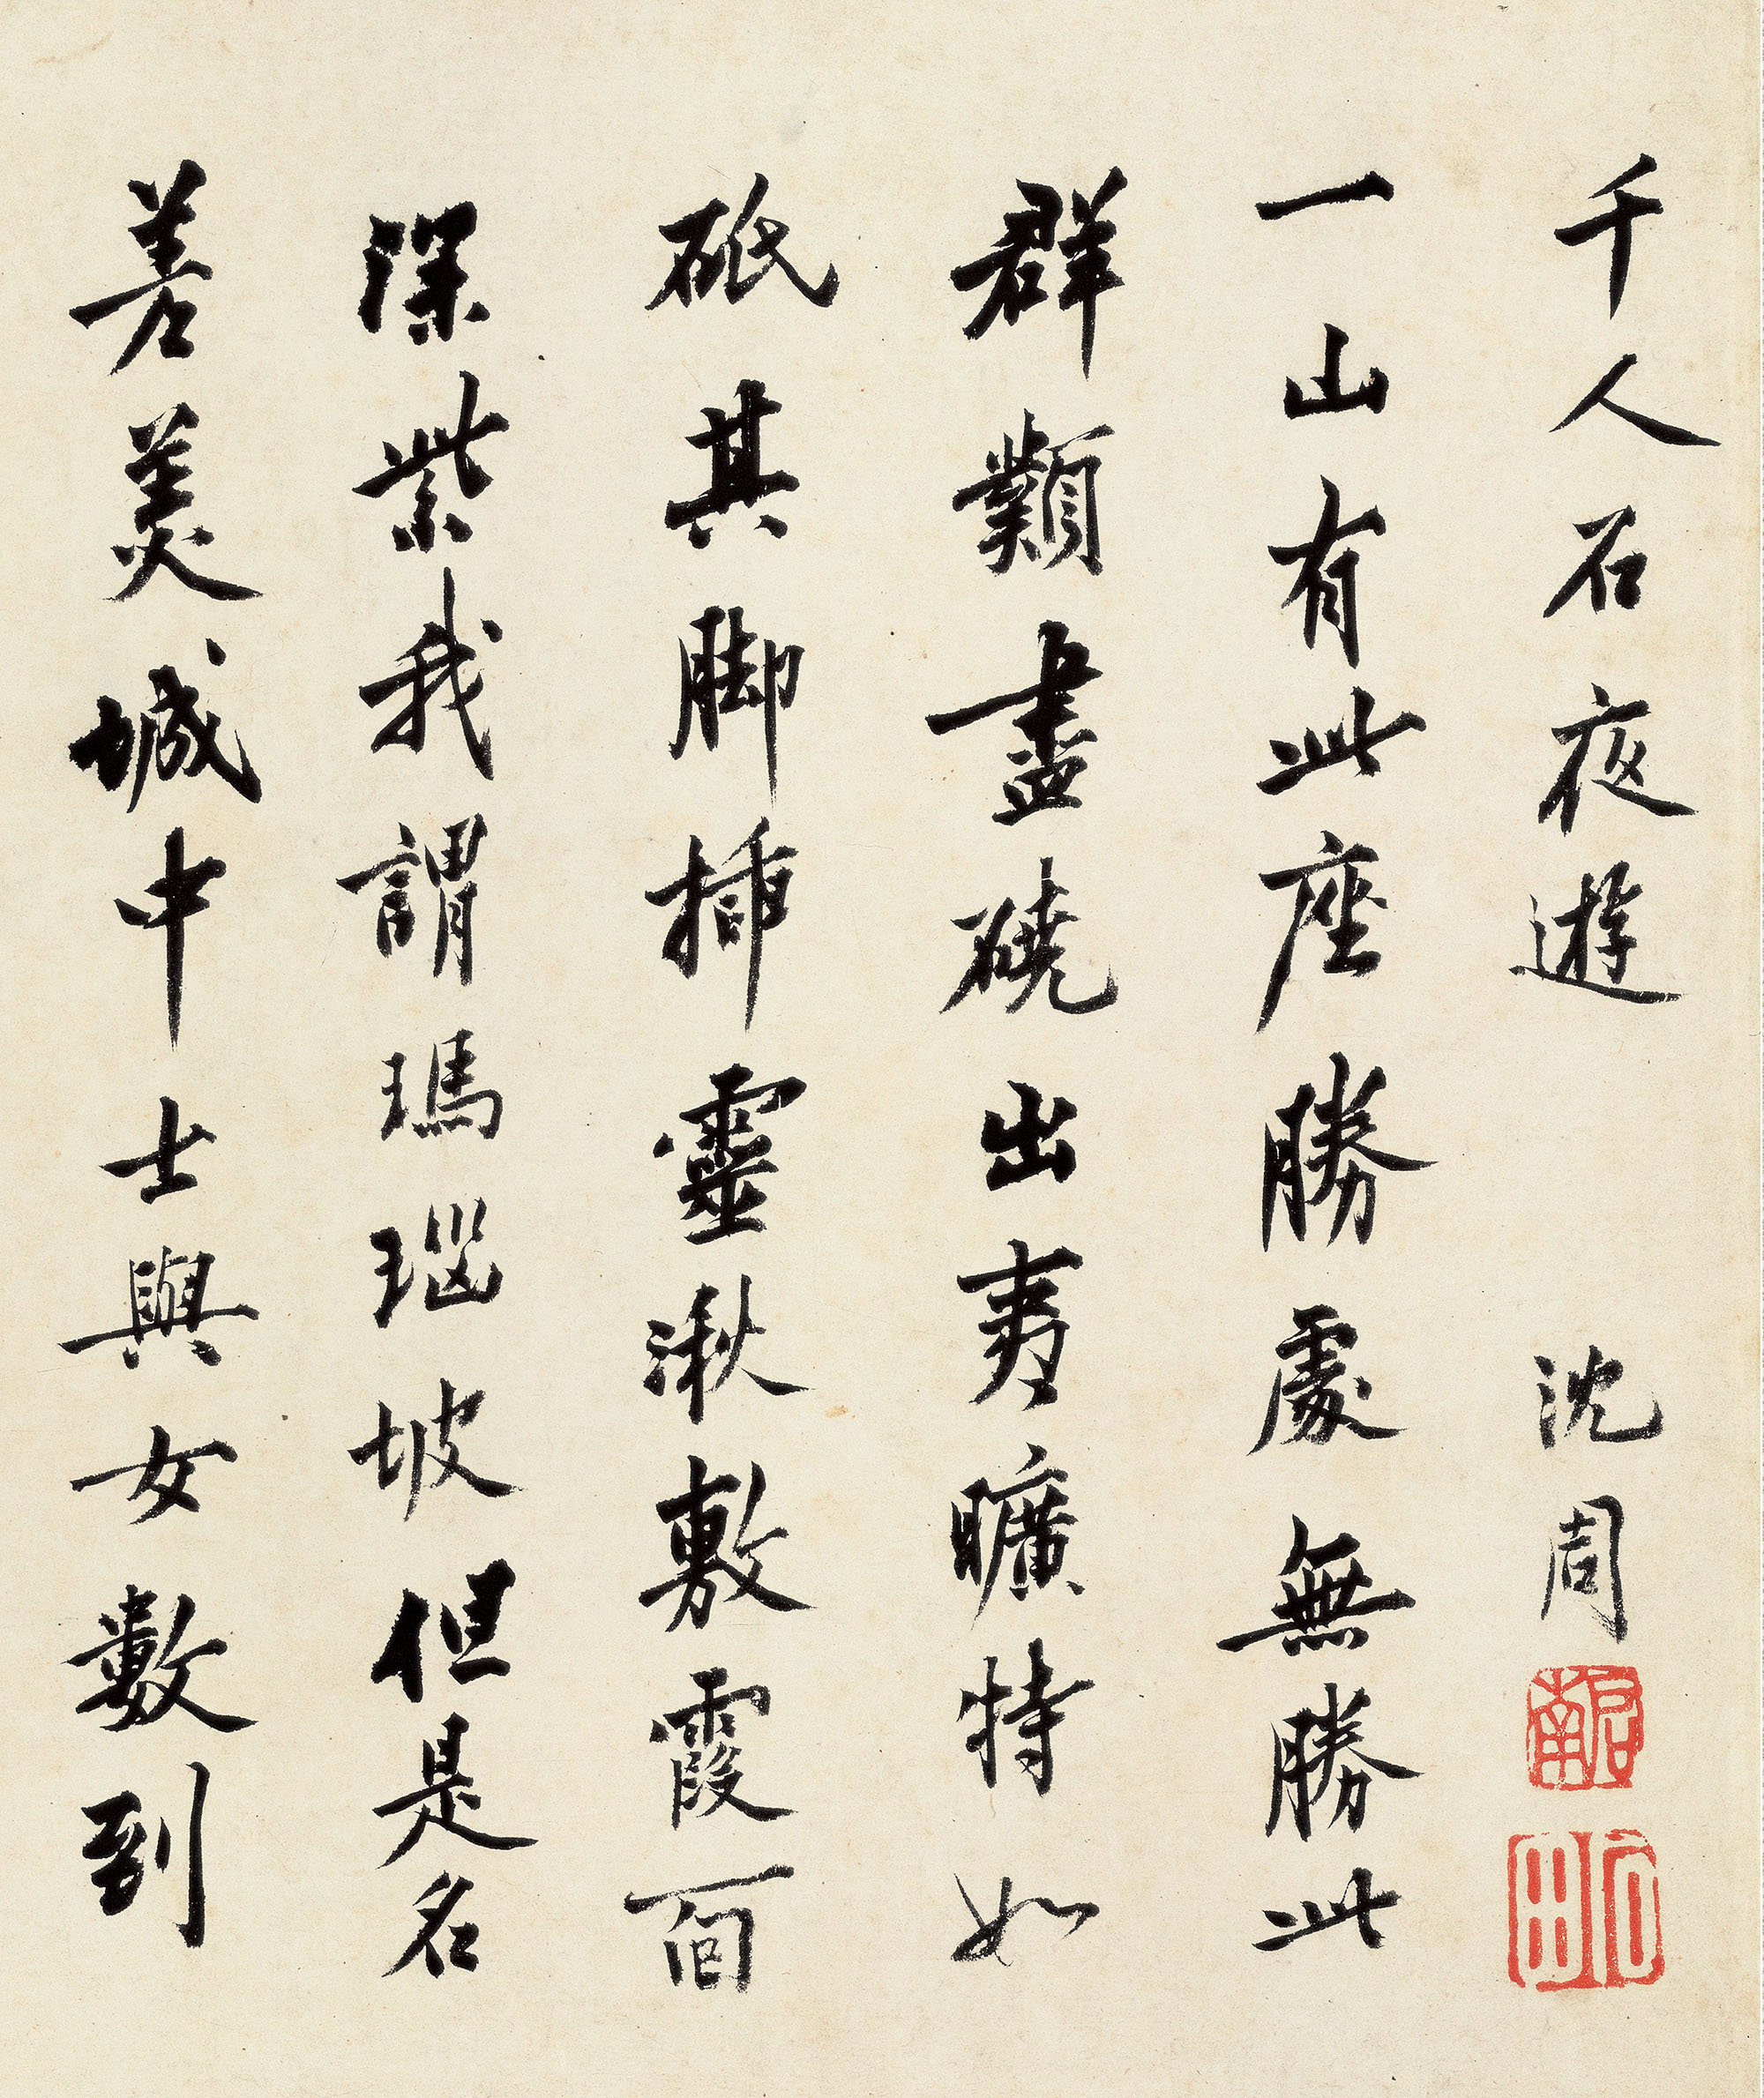 千人石夜遊　沈周
啟南
石田
一山有此座勝處無勝此
群類盡磽出夷曠特如
砥其脚插靈湫敷霞面
深紫我謂瑪瑙坡但是名
差美城中士與女數到